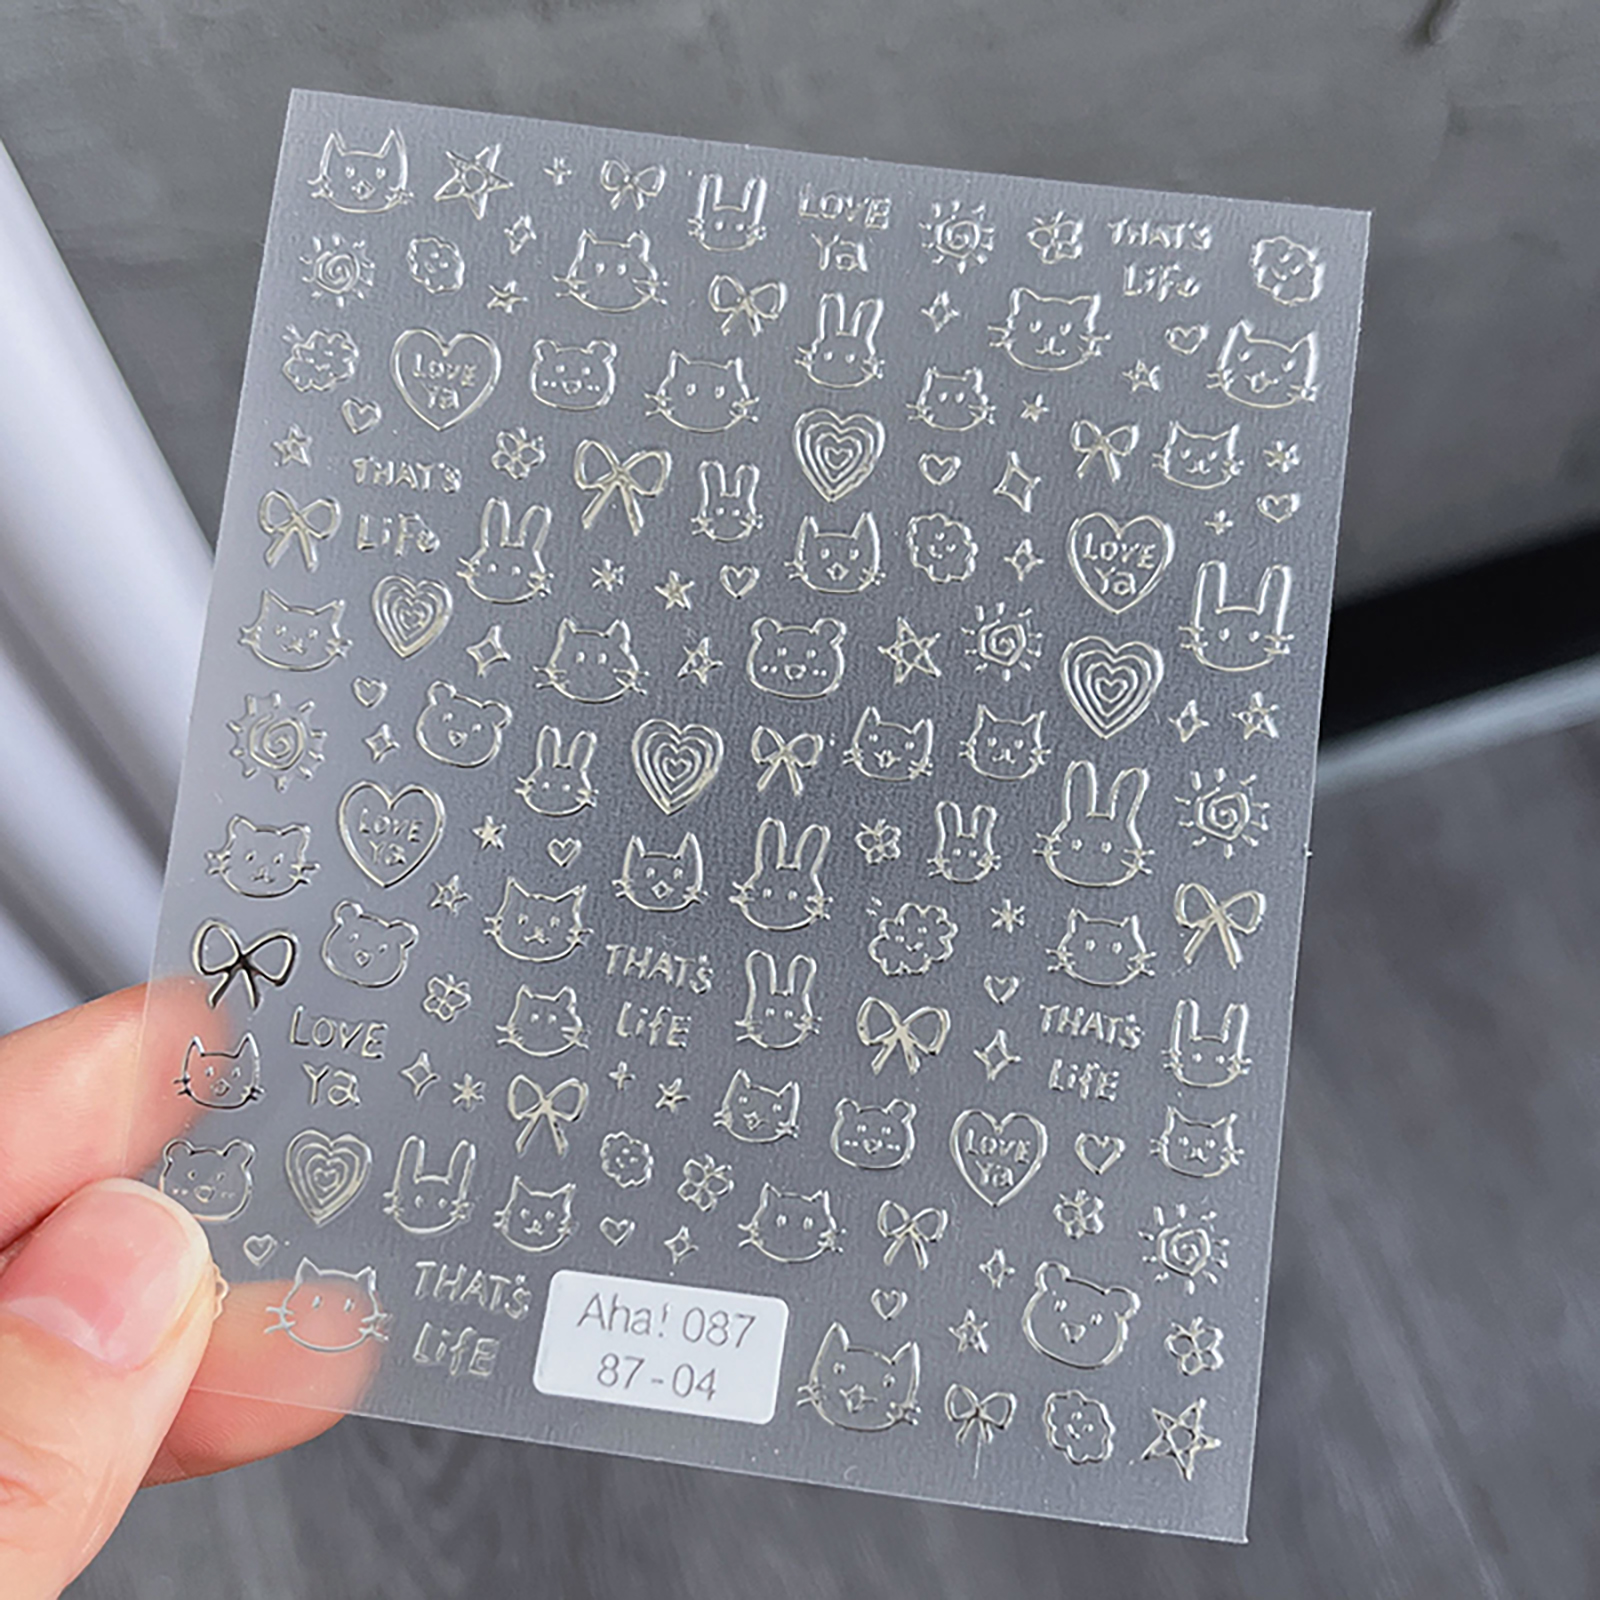 LOVE
Ya
THAT'S
Life
LOVE
Ya
THAT'S
Life
LOVE
Ya
LOVE
Ya
THAT'S
LifE
LOVE
Ya
THAT'S
LifE
LOVE
Ya
THAT'S
LifE
Aha! 087
87-04